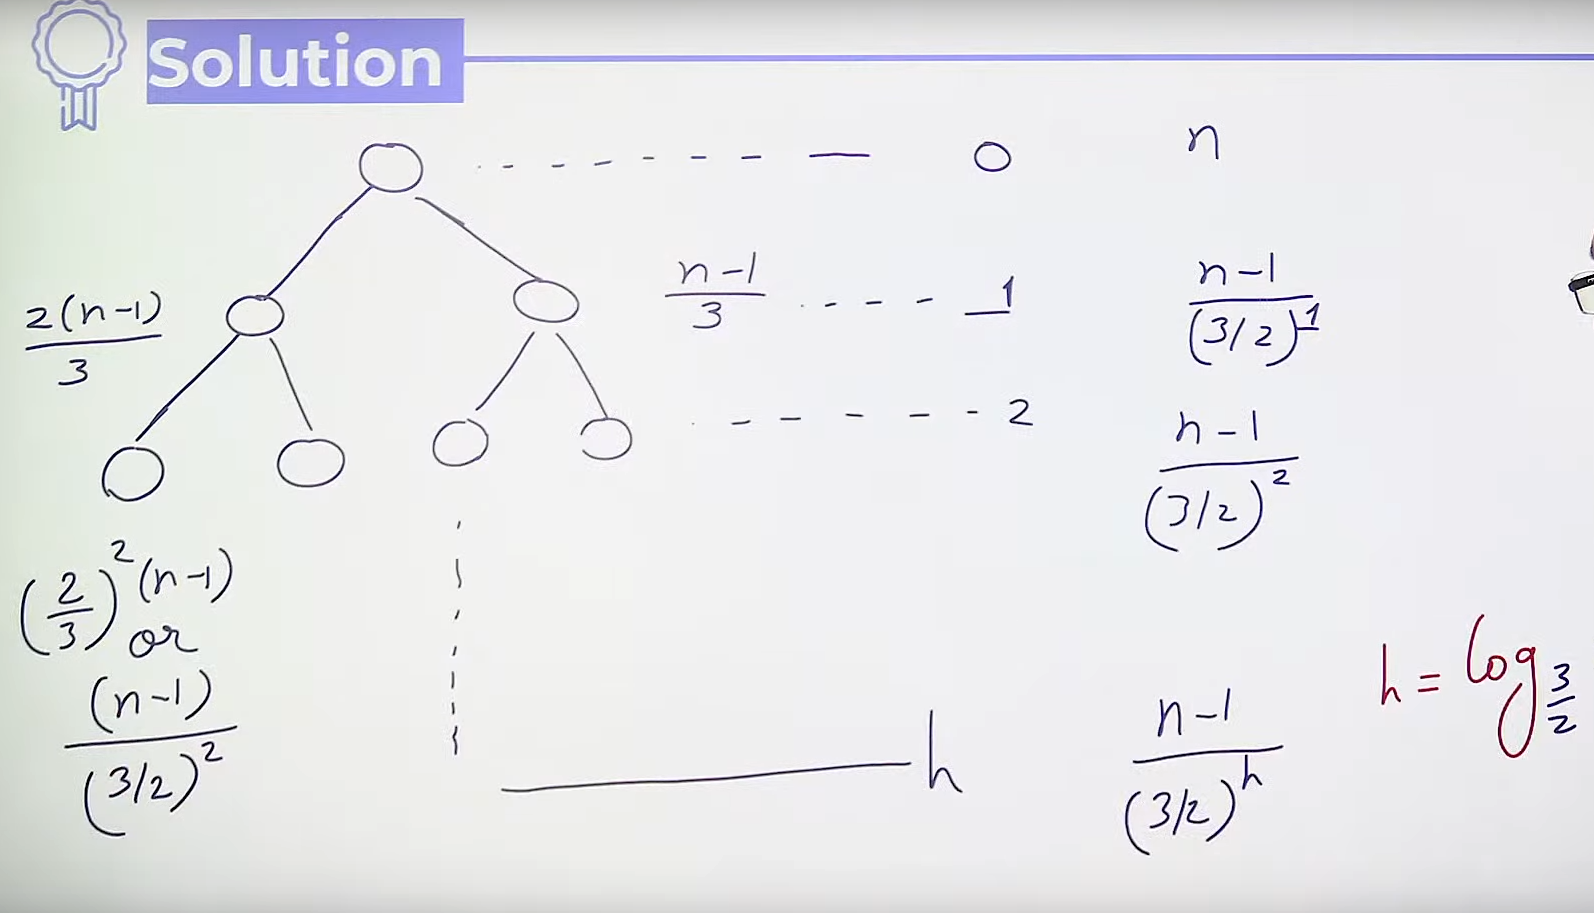 Solution
0 n
2(n-1)/3
n-1/3 1
n-1/(3/2)^1
2
n-1/(3/2)^2
(2/3)^2 (n-1)
or
(n-1)/(3/2)^2
h
n-1/(3/2)^h
h = log 3/2